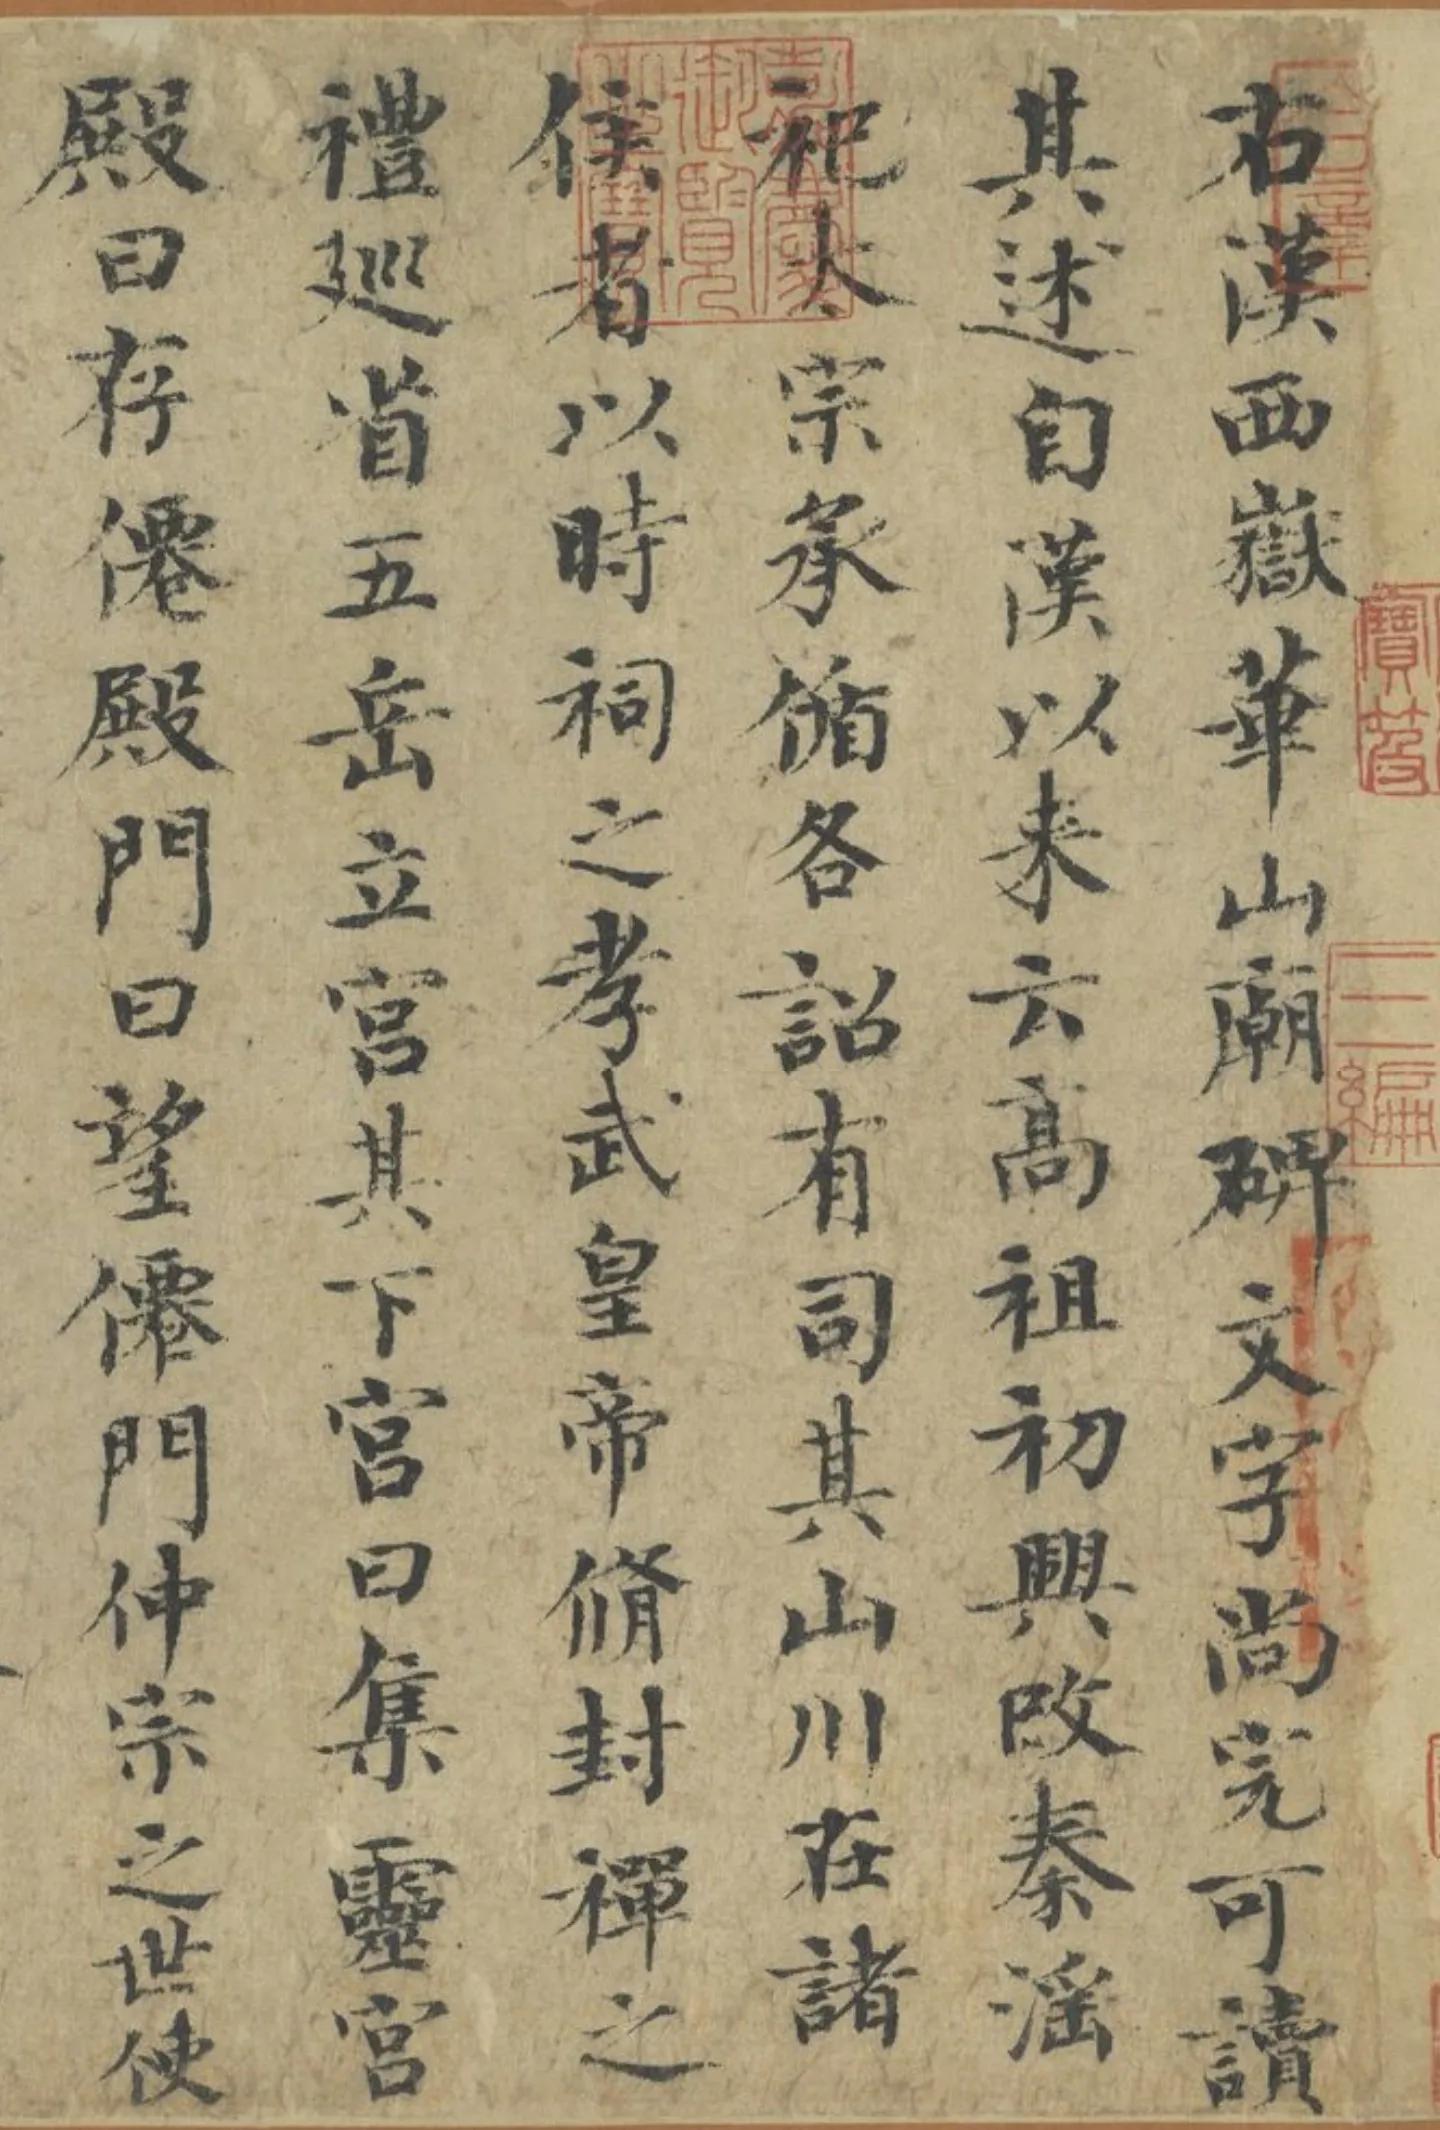 右漢西嶽華山廟碑文字尚完可讀
其述自漢以来云高祖初興改秦滛
祀太宗承循各詔有司其山川在諸
侯者以時祠之孝武皇帝脩封禪之
禮廵省五岳立宮其下宮曰集靈宮
殿曰存僊殿門曰望僊門仲宗之世使